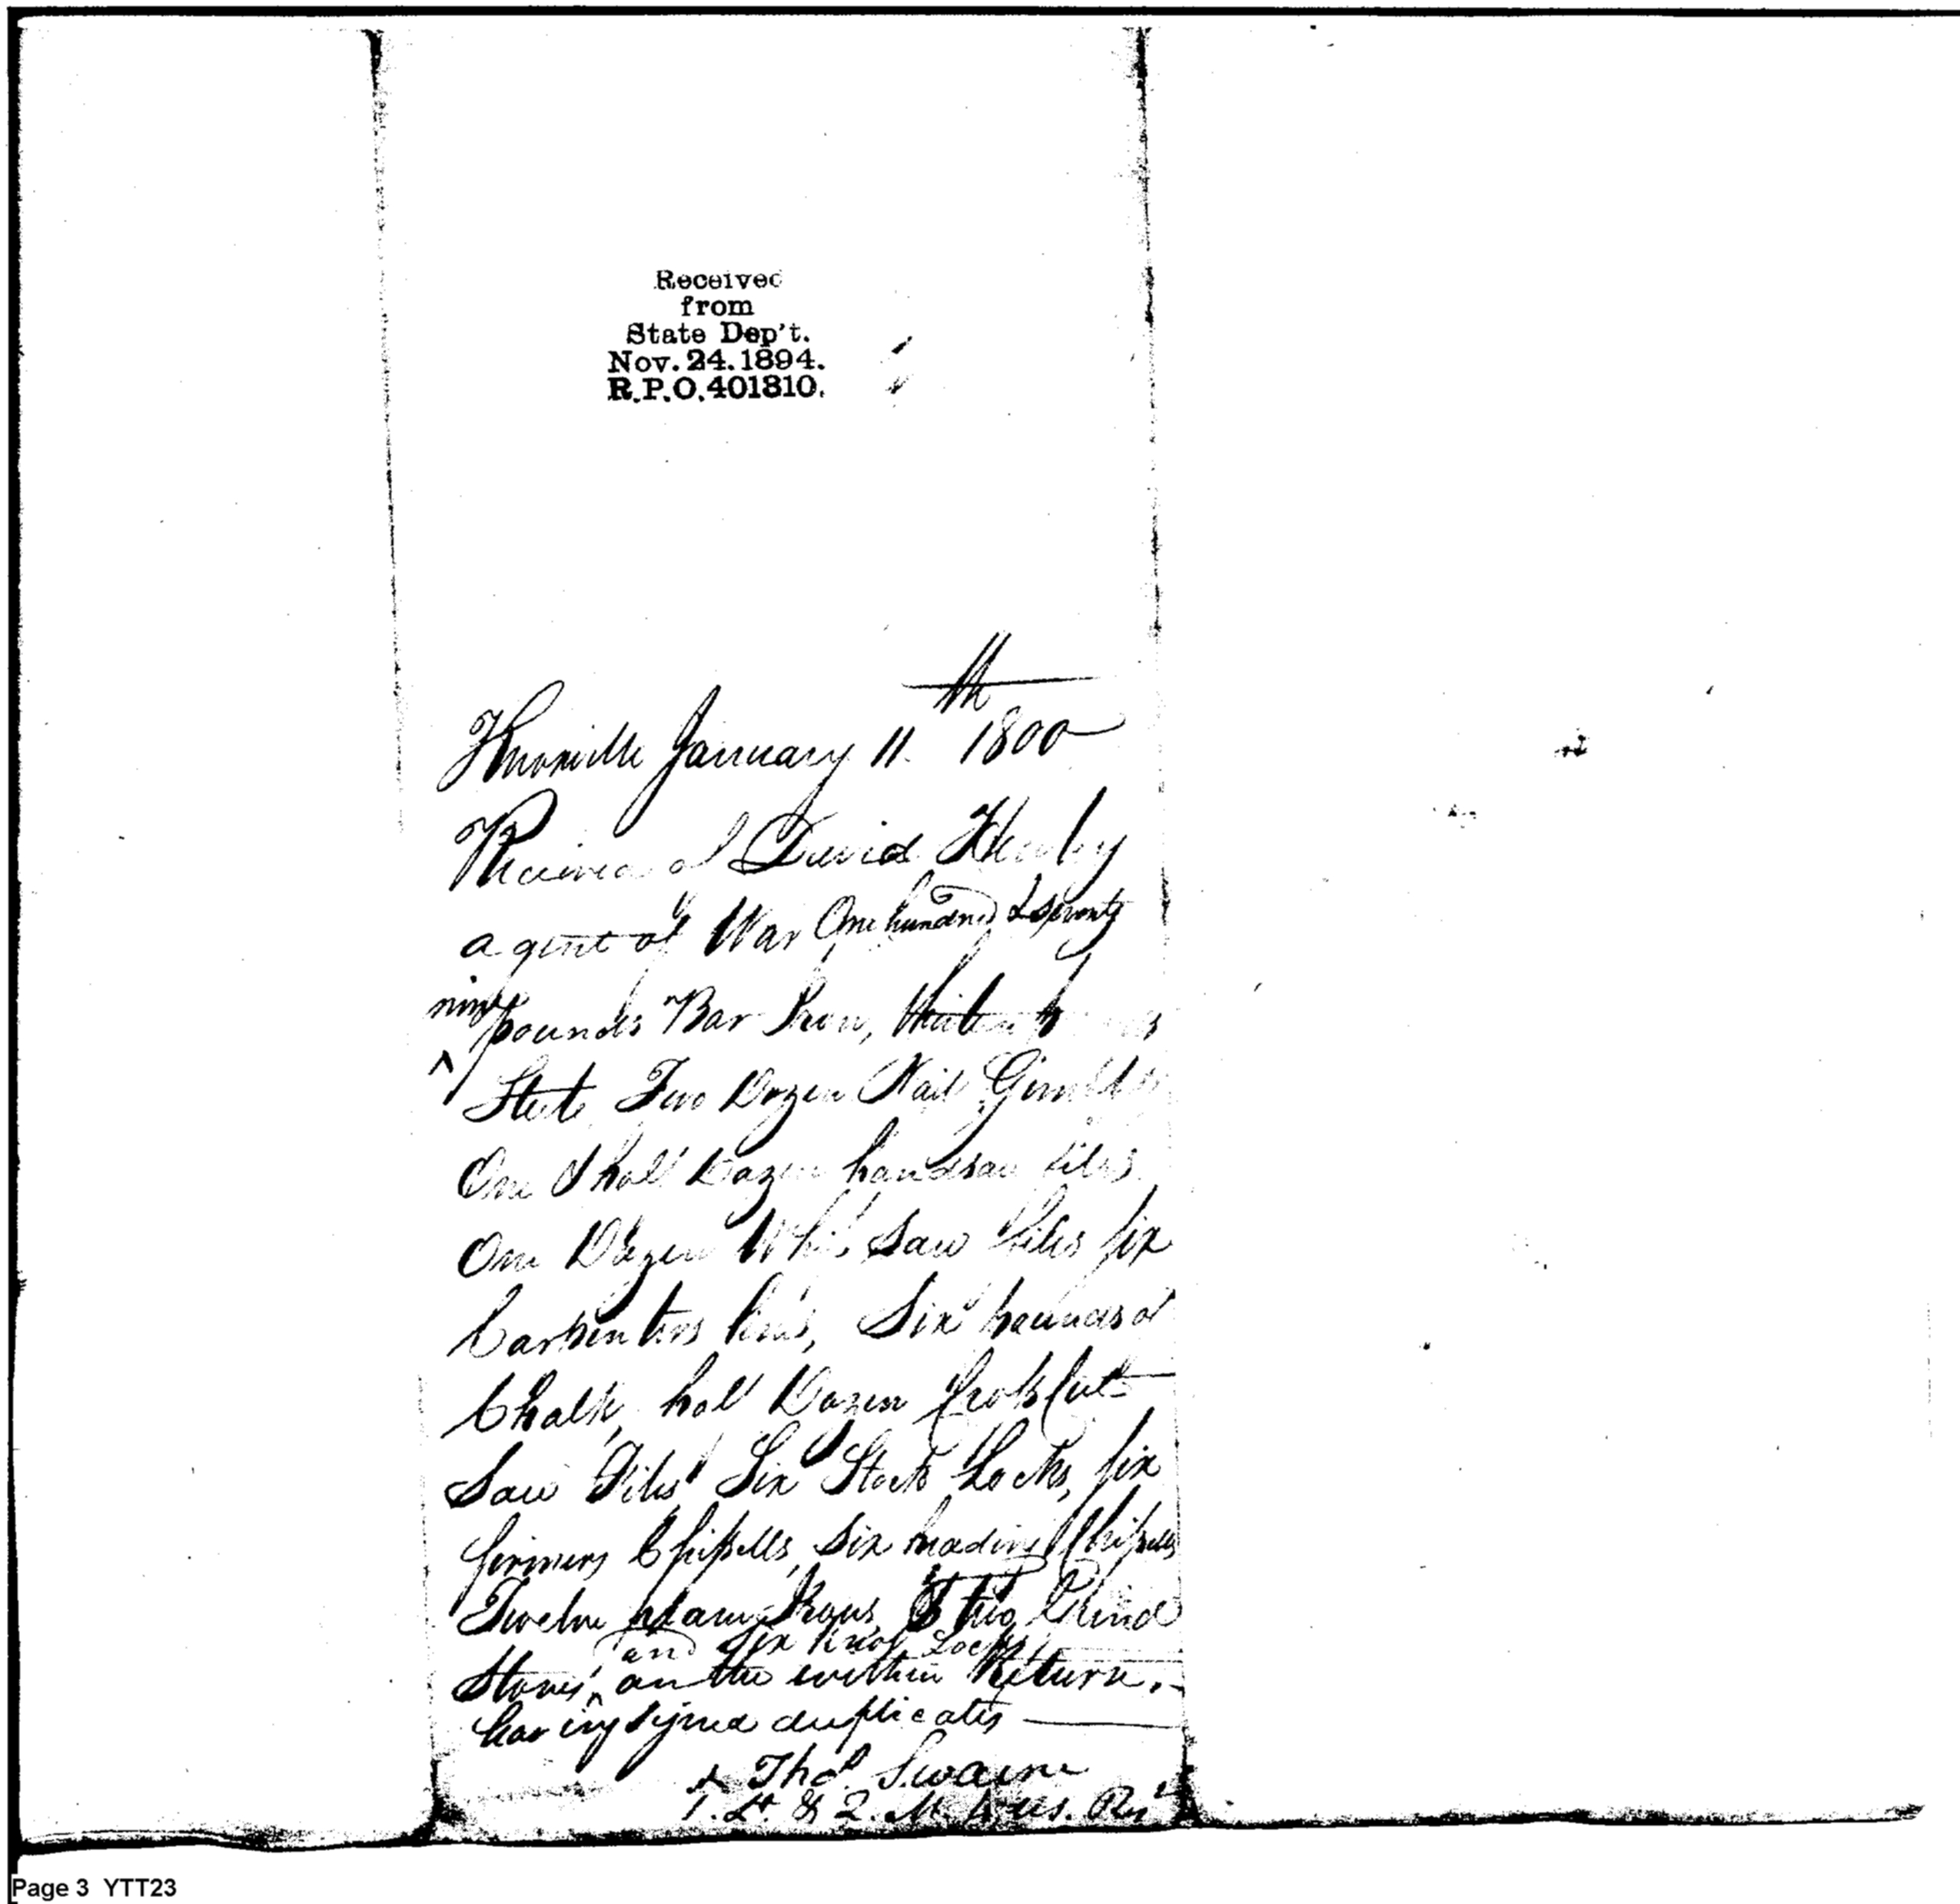 Received
from
State Dep't.
Nov. 24. 1894.
R.P.O. 401810.
Knoxville January 11th 1800
Received of David Henley
agent of War One hundred & seventy
nine
pounds Bar Iron, thirteen
Steele Two Dozen Nail Gimblets
One & half Dozen handsaw files
One Dozen Whip Saw files six
Carpenters lines, Six pounds of
Chalk, half Dozen Cross Cut
Saw Files Six Stock Locks, six
firmers Chissells, Six mortising Chissells
Twelve plain Irons, & two Grind
and Six Knob Locks
Stones, on the within Return. -
having signed duplicates
Thos. Swaine
1. Lt. & Q. M. 4 U.S. Regt
Page 3 YTT23